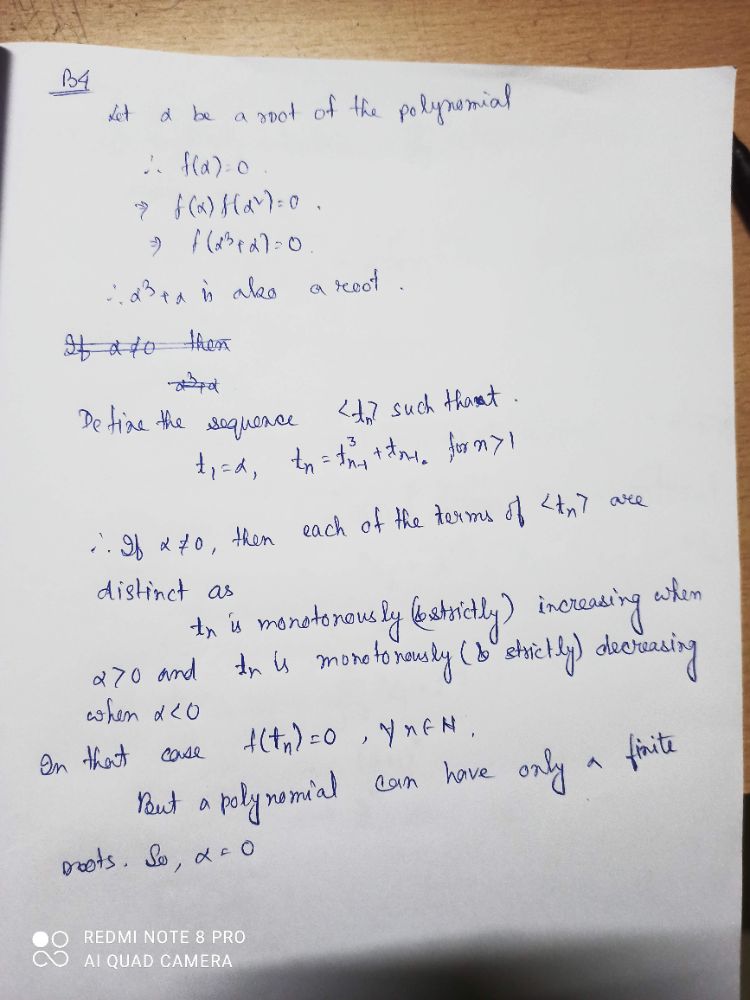 B4
Let α be a root of the polynomial
∴ f(α)=0.
⇒ f(α) f(α²)=0.
⇒ f(α³+α)=0.
∴ α³+α is also a root.
If α≠0 then
α³+α
Define the sequence <tₙ> such that.
t₁=α, tₙ = t³ₙ₋₁ + tₙ₋₁. for n>1
∴ If α≠0, then each of the terms of <tₙ> are
distinct as
tₙ is monotonously (& strictly) increasing when
α>0 and tₙ is monotonously (& strictly) decreasing
when α<0
In that case f(tₙ)=0, ∀ n∈N.
But a polynomial can have only a finite
roots. So, α=0
REDMI NOTE 8 PRO
AI QUAD CAMERA